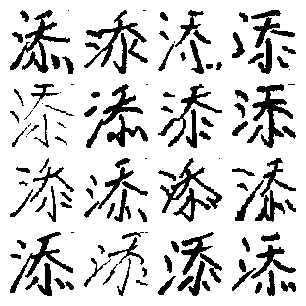 添添添添
添添添添
添添添添
添添添添